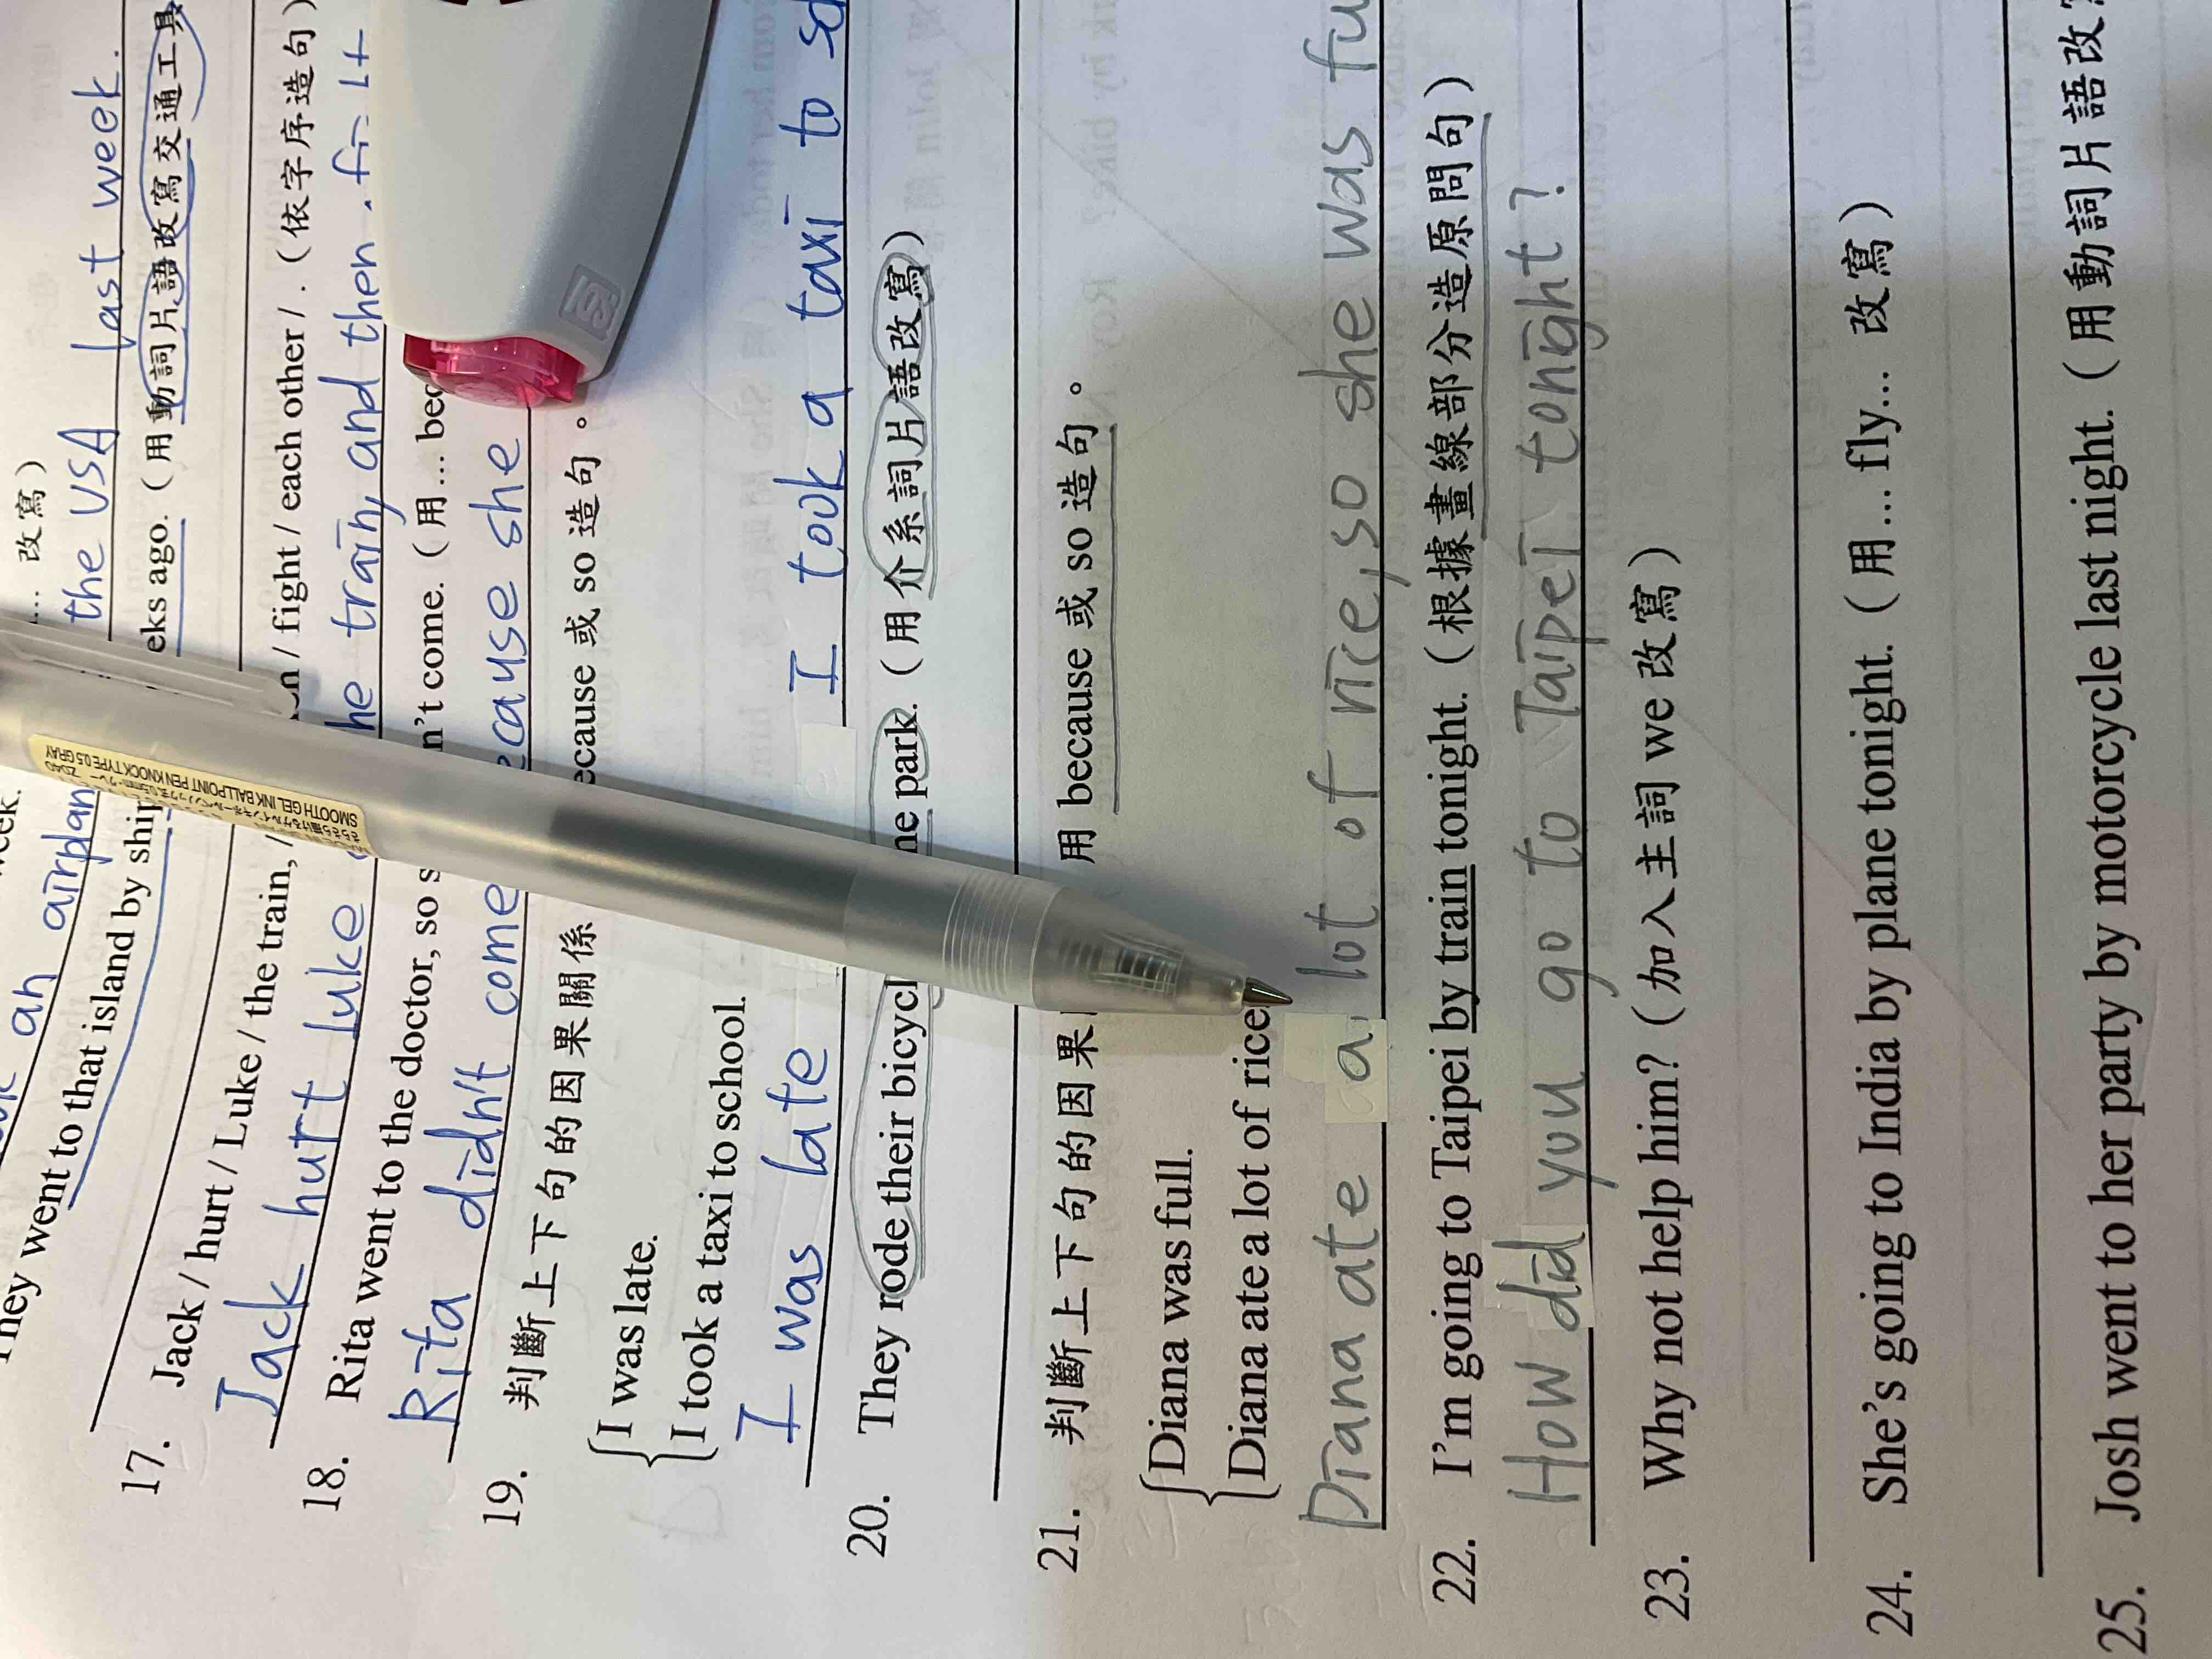 ... 改寫）
the USA last week.
an airplan
They went to that island by ship
eks ago.（用動詞片語改寫交通工具
17. Jack / hurt / Luke / the train, /
/ fight / each other / .（依字序造句）
Jack hurt Luke
he train, and then
18. Rita went to the doctor, so s
n't come.（用 ... bec
Rita didn't come
ecause she
19. 判斷上下句的因果關係
ecause 或 so 造句。
I was late.
I took a taxi to school.
I was late
I took a taxi to sc
20. They rode their bicycl
he park.（用介系詞片語改寫）
21. 判斷上下句的因果
用 because 或 so 造句。
Diana was full.
Diana ate a lot of rice
Diana ate a lot of rice, so she was fu
22. I'm going to Taipei by train tonight.（根據畫線部分造原問句）
How did you go to Taipei tonight?
23. Why not help him?（加入主詞 we 改寫）
24. She's going to India by plane tonight.（用 ... fly... 改寫）
25. Josh went to her party by motorcycle last night.（用動詞片語改
SMOOTH GEL INK BALLPOINT PEN KNOCK TYPE 0.5 GRAY